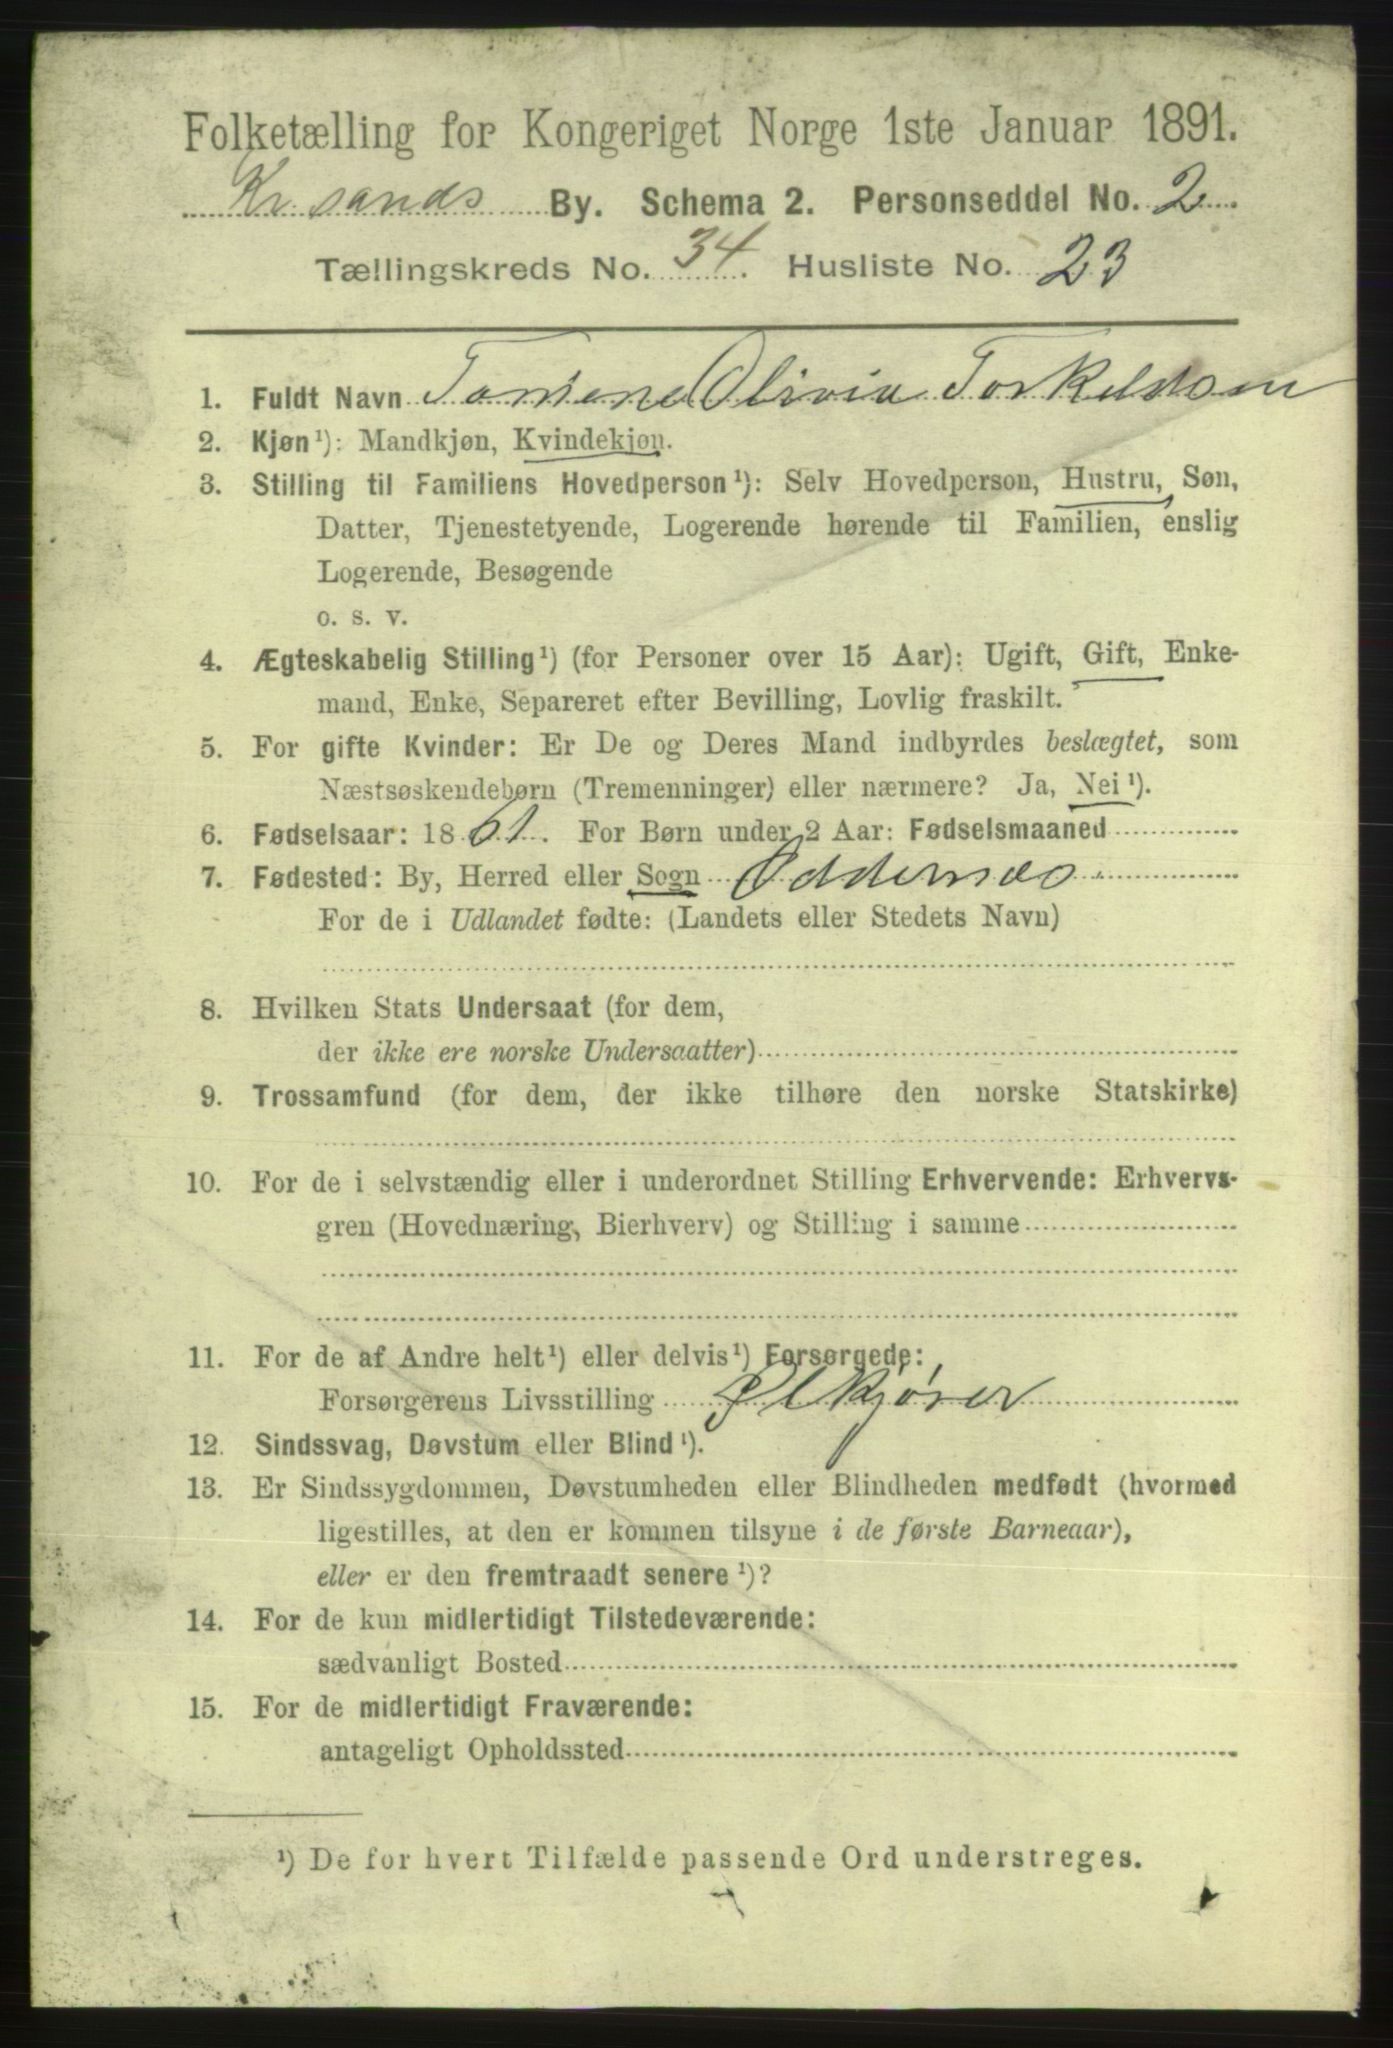 Folketælling for Kongeriget Norge 1ste Januar 1891.
Kr.sands By. Schema 2. Personseddel No. 2
Tællingskreds No. 34. Husliste No. 23
1. Fuldt Navn Tomine Olivia Torkeldsen
2. Kjøn¹): Mandkjøn, Kvindekjøn.
3. Stilling til Familiens Hovedperson¹): Selv Hovedperson, Hustru, Søn,
Datter, Tjenestetyende, Logerende hørende til Familien, enslig
Logerende, Besøgende
o. s. v.
4. Ægteskabelig Stilling¹) (for Personer over 15 Aar): Ugift, Gift, Enke-
mand, Enke, Separeret efter Bevilling, Lovlig fraskilt.
5. For gifte Kvinder: Er De og Deres Mand indbyrdes beslægtet, som
Næstsøskendebørn (Tremenninger) eller nærmere? Ja, Nei¹).
6. Fødselsaar: 1861. For Børn under 2 Aar: Fødselsmaaned
7. Fødested: By, Herred eller Sogn Oddernæs
For de i Udlandet fødte: (Landets eller Stedets Navn)
8. Hvilken Stats Undersaat (for dem,
der ikke ere norske Undersaatter)
9. Trossamfund (for dem, der ikke tilhøre den norske Statskirke)
10. For de i selvstændig eller i underordnet Stilling Erhvervende: Erhvervs-
gren (Hovednæring, Bierhverv) og Stilling i samme
11. For de af Andre helt¹) eller delvis¹) Forsørgede:
Forsørgerens Livsstilling Ølkjører
12. Sindssvag, Døvstum eller Blind¹).
13. Er Sindssygdommen, Døvstumheden eller Blindheden medfødt (hvormed
ligestilles, at den er kommen tilsyne i de første Barneaar),
eller er den fremtraadt senere¹)?
14. For de kun midlertidigt Tilstedeværende:
sædvanligt Bosted
15. For de midlertidigt Fraværende:
antageligt Opholdssted
¹) De for hvert Tilfælde passende Ord understreges.